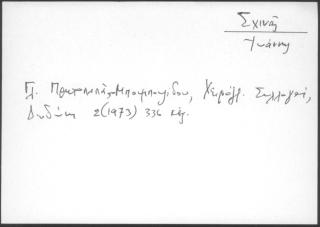 Σχινᾶς
Ἰωάννης
Γλ. Πρωτοπαπᾶ-Μπουμπουλίδου, Χειρόγρ. Συλλογαί,
Δωδώνη 2(1973) 336 κἑξ.